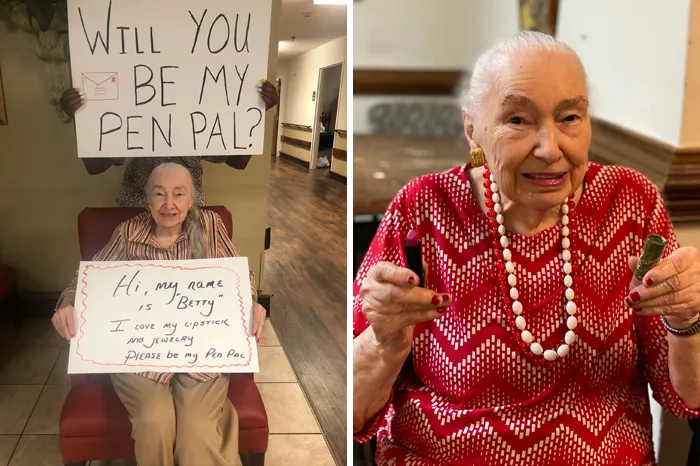 WILL YOU
BE MY
PEN PAL?
Hi, my name
is "Betty"
I LOVE MY LIPSTICK
AND JEWELRY
PLEASE BE MY PEN PAL